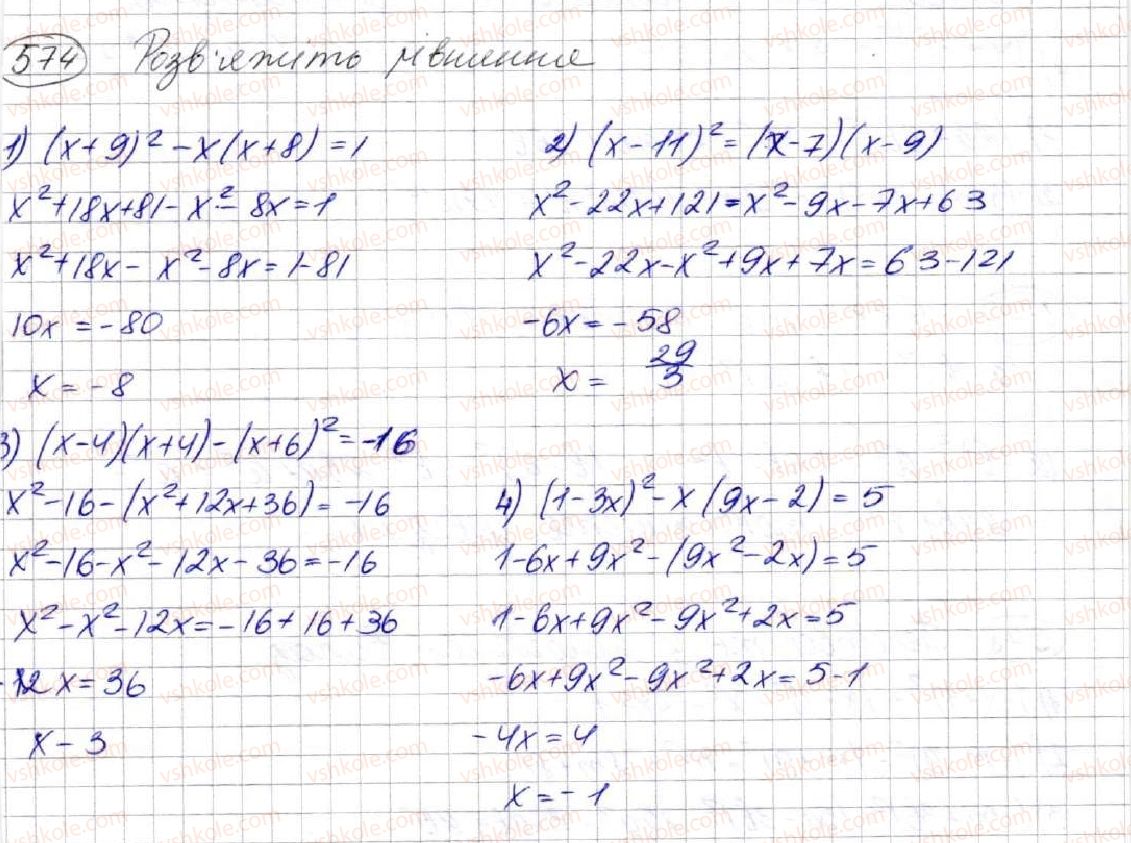 574 Розв'яжіть рівняння
1) (x+9)² - x(x+8) = 1
x²+18x+81-x²-8x=1
x²+18x-x²-8x=1-81
10x = -80
x = -8
2) (x-11)² = (x-7)(x-9)
x²-22x+121=x²-9x-7x+63
x²-22x-x²+9x+7x=63-121
-6x = -58
x = 29/3
3) (x-4)(x+4)-(x+6)² = -16
x²-16-(x²+12x+36) = -16
x²-16-x²-12x-36=-16
x²-x²-12x=-16+16+36
-12x=36
x-3
4) (1-3x)² - x(9x-2) = 5
1-6x+9x²-(9x²-2x)=5
1-6x+9x²-9x²+2x=5
-6x+9x²-9x²+2x=5-1
-4x=4
x=-1
vshkole.com